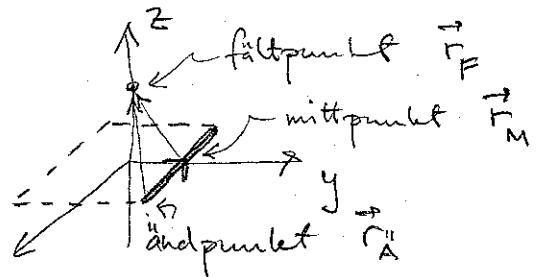 z
fältpunkt r⃗_F
mittpunkt r⃗_M
y
ändpunkt r⃗_Ä